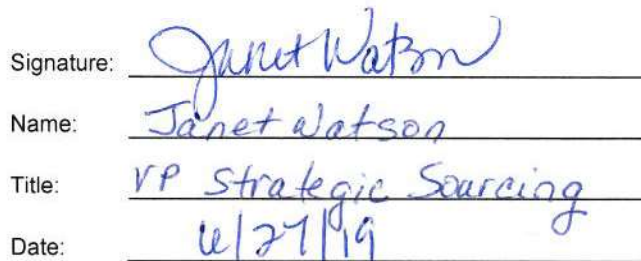 Signature: Janet Watson
Name: Janet Watson
Title: VP Strategic Sourcing
Date: 6/27/19